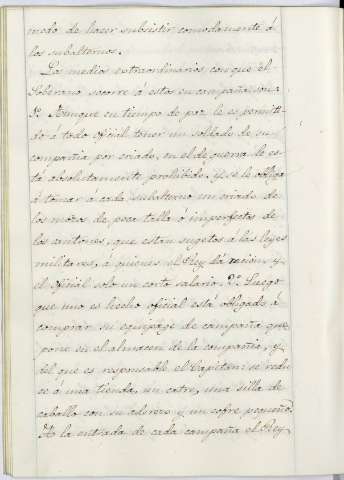 modo de hacer subsistir comodamente á
los subalternos.
Los medios extraordinários con que el
Soberano socorre á estos en campaña son:
1º Aunque en tiempo de paz le es permiti-
do á todo oficial tener un soldado de su
compañia por criado, en el de guerra le es-
tá absolutamente prohibido, y se le obliga
á tomar á cada subalterno un criado de
los mozos de poca talla ó imperfectos de
los cantones, que estan sugetos á las leyes
militares, á quienes el Rey dá racion, y
el oficial solo un corto salario. 2º Luego
que uno es hecho oficial está obligado á
comprar su equipage de campaña que
pone en el almacen de la compañia, y
del que es responsable el Capitan: se redu
ce á una tienda, un catre, una silla de
caballo con su aderezo y un cofre pequeño.
A la entrada de cada campaña el Rey